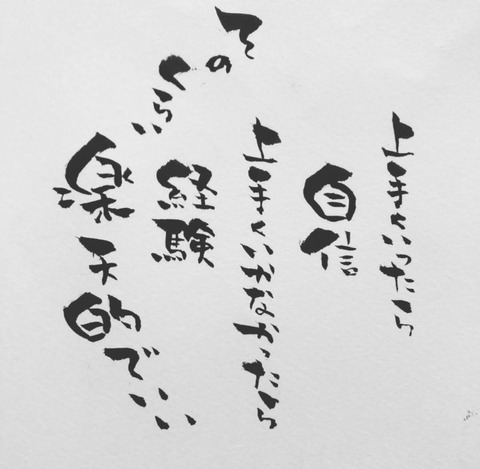 上手くいったら
自信
上手くいかなかったら
経験
そのくらい
楽天的でいい